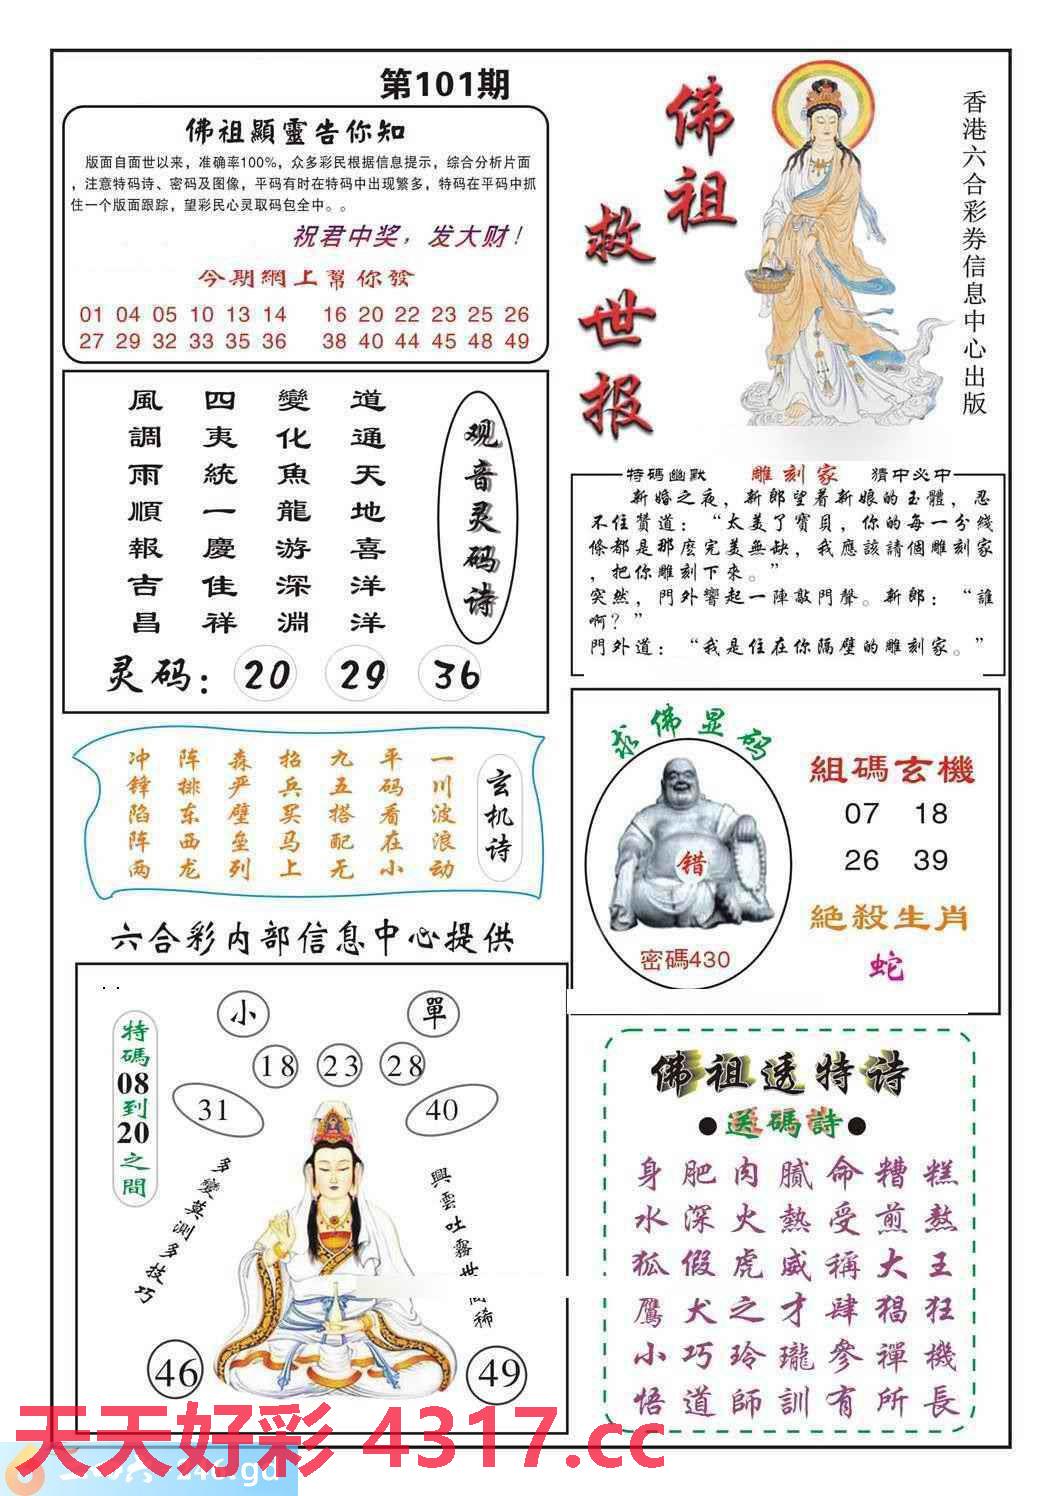 第101期
佛祖顯靈告你知
版面自面世以来，准确率100%，众多彩民根据信息提示，综合分析片面
，注意特码诗、密码及图像，平码有时在特码中出现繁多，特码在平码中抓
住一个版面跟踪，望彩民心灵取码包全中。。
祝君中奖，发大财！
今期網上幫你發
01 04 05 10 13 14 16 20 22 23 25 26
27 29 32 33 35 36 38 40 44 45 48 49
佛祖
救世报
香港六合彩券信息中心出版
观音灵码诗
道通天地喜洋洋
變化魚龍游深淵
四夷統一慶佳祥
風調雨順報吉昌
灵码：20 29 36
特碼幽默 雕刻家 猜中必中
新婚之夜，新郎望着新娘的玉體，忍
不住贊道：“太美了寶貝，你的每一分綫
條都是那麽完美無缺，我應該請個雕刻家
，把你雕刻下來。”
突然，門外響起一陣敲門聲。新郎：“誰
啊？”
門外道：“我是住在你隔壁的雕刻家。”
玄机诗
一川波浪动
平码看在小
九五搭配无
招兵买马上
森严壁垒列
阵排东西龙
冲锋陷阵两
求佛显码
错
密碼430
組碼玄機
07 18
26 39
絕殺生肖
蛇
六合彩内部信息中心提供
特碼08到20之間
小 單
18 23 28
31 40
多變莫測多技巧
興雲吐霧世
稀
46 49
佛祖透特诗
●送碼詩●
身肥肉膩命糟糕
水深火熱受煎熬
狐假虎威稱大王
鷹犬之才肆猖狂
小巧玲瓏參禪機
悟道師訓有所長
天天好彩 4317.cc
246.gd